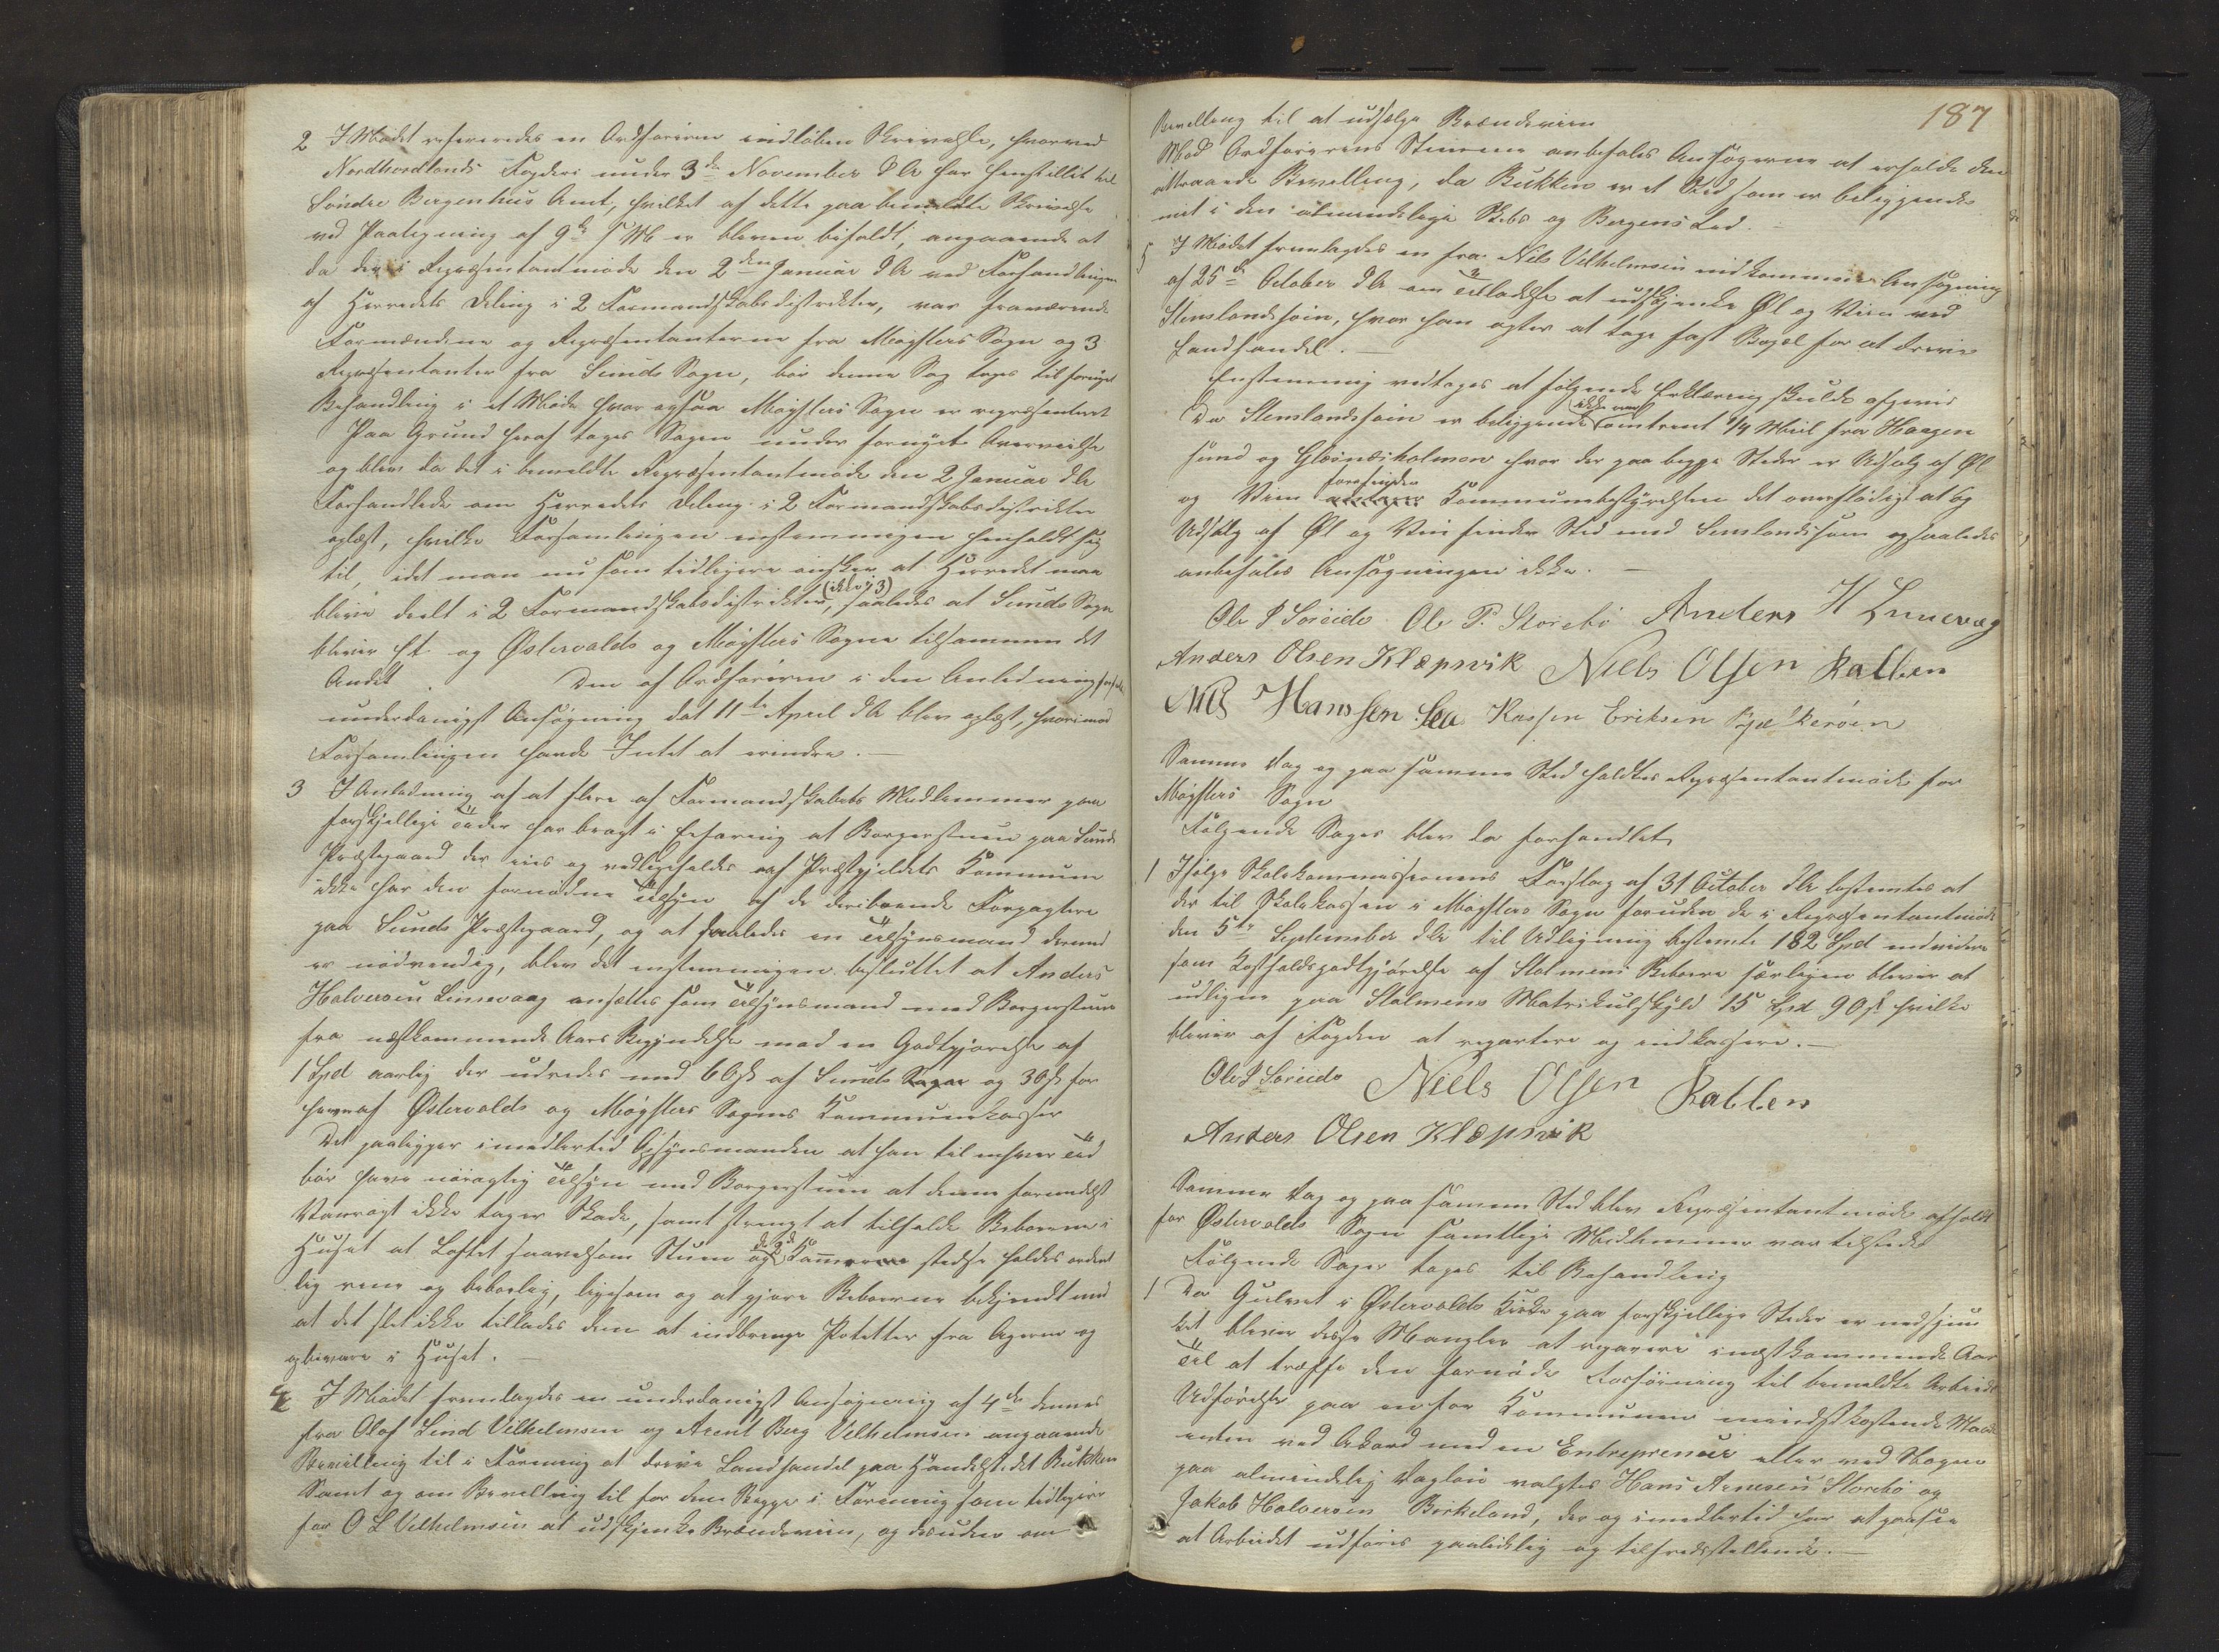 2 I Mødet refereredes en Ordføreren indløben Skrivelse, hvorved
Nordhordlands Fogderi under 3de November d A har henstillet til
Söndre Bergenhus Amt, hvilket af dette paa bemeldte Skrivelse
ved Paategning af 9de s M er bleven bifaldt, angaaende at
da der i Repræsentantmøde den 2den Januar d A ved Forhandlingen
af Herredets Deling i 2 Formandskabsdistrikter, var fraværende
Formændene og Repræsentanterne fra Møgsters Sogn og 3
Repræsentanter fra Sunds Sogn, bør denne Sag tages til fornyet
Behandling i et Møde hvor ogsaa Møgsters Sogn er repræsenteret
Paa Grund heraf toges Sagen under fornyet Overveielse
og blev da det i bemeldte Repræsentantmøde den 2 Januar d A
Forhandlede om Herredets Deling i 2 Formandskabsdistrikter
oplæst, hvilke Forsamlingen enstemmigen henholdt sig
til, idet man nu som tidligere ønsker at Herredet maa
blive deelt i 2 Formandskabsdistrikter (ikke i 3), saaledes at Sunds Sogn
bliver Et og Østervolds og Møgsters Sogne tilsammen det
Andet. Den af Ordføreren i den Anledning
underdanigst Ansøgning dat 11te April d A blev oplæst, hvorimod
Forsamlingen havde Intet at erindre.
3 I Anledning af at flere af Formandskabets Medlemmer paa
forskjellige Tider har bragt i Erfaring at Borgerstuen paa Sunds
Præstegaard der eies og vedligeholdes af Præstegjeldets Kommune
ikke har den fornødne Tilsyn af de derboende Forpagtere
paa Sunds Præstegaard, og at saaledes en Tilsynsmand derved
er nødvendig, blev det enstemmigen besluttet at Anders
Halvorsen Linnevaag ansættes som Tilsynsmand med Borgerstuen
fra næstkommende Aars Begyndelse mod en Godtgjørelse af
1 Spd aarlig der udredes med 60 s af Sunds Sogns og 30 s for
hver af Østervolds og Møgsters Sognes Kommunekasser
Det paaligger imedlertid Opsynsmanden at han til enhver Tid
bør have nøiagtig Tilsyn med Borgerstuen at denne formedelst
Vanrøgt ikke tager Skade, samt strengt at tilholde Beboerne i
Huset at Loftet saavelsom Stuen og de 2de Kammerne stedse holdes ordent
lig rene og beboelig, ligesom og at gjøre Beboerne bekjendt med
at det slet ikke tillades dem at indbringe Poteter fra Agerne og
opbevare i Huset.
4 I Mødet fremlagdes en underdanigst Ansøgning af 4de dennes
fra Olaf Lind Vilhelmsen og Arent Berg Vilhelmsen angaaende
Bevilling til i Forening at drive Landhandel paa Handelstedet Bukken
Samt og om Bevelling til for dem Begge i Forening som tidligere
for O L Vilhelmsen at udskjenke Brændeviin, og desuden om
187
Bevelling til at udsælge Brændeviin
Mod Ordførerens Stemme anbefales Ansøgerne at erholde den
attraaede Bevelling, da Bukken er et Sted som er beliggende
midt i den almindelige Skibs og Bergens Led.
5 I Mødet fremlagdes en fra Niels Vilhelmsen indkommen Ansøgning
af 25de October d A om Tilladelse at udskjenke Øl og Viin ved
Stenslandssøen, hvor han agter at tage fast Bopæl for at drive
Landhandel.
Enstemmig vedtoges at følgende Erklæring skulde afgives
Da Stenslandssøen er beliggende (ikke end) omtrent 1/4 Miil fra Haagen
sund og Glesnæsholmen hvor der paa begge Steder er Udsalg af Øl
og Viin forefinder Kommunebestyrelsen det overflødigt at og
Udsalg af Øl og Vin finder Sted ved Stenslandssøen og saaledes
anbefales Ansøgningen ikke.
Ole P Søreide Ole P. Storebö Anders H Linnevaag
Anders Olsen Klæpsvik Niels Olsen Kallen
Nils Hanssen Lea Rasmus Eriksen
Samme Dag og paa samme Sted holdtes Repræsentantmøde for
Møgsters Sogn
Følgende Sager blev da forhandlet
1 Ifølge Skolekommissionens Forslag af 31 October d A bestemtes at
der til Skolekassen i Møgsters Sogn foruden de i Repræsentantmøde
den 5te September d A til Udligning bestemte 182 Spd endvidere
som Kostholdsgodtgjørelse af Stolmens Beboere særligen bliver at
udligne paa Stolmens Matrikulskyld 15 Spd 90 s hvilke
bliver af Fogden at repartere og indkassere.
Ole P Søreide Niels Olsen Kallen
Anders Olsen Klæpsvik
Samme Dag og paa samme Sted blev Repræsentantmøde afholdt
for Østervolds Sogn samtlige Medlemmer var tilstede
Følgende Sager toges til Behandling
1 Da Gulvet i Østervolds Kirke paa forskjellige Steder er nedsjun
ket bliver disse Mangler at reparere i næstkommende Aar
Til at træffe den fornødne Forføining til bemeldte Arbeids
Udførelse paa en for Kommunen mindst kostende Maade
enten ved Akord med en Entreprenør eller ved Nogen
paa almindelig Dagløn valgtes Hans Arnesen Storebö og
Jakob Halvorsen Birkeland, der og imedlertid har at paasee
at Arbeidet udføres paalidelig og tilfredsstillende.